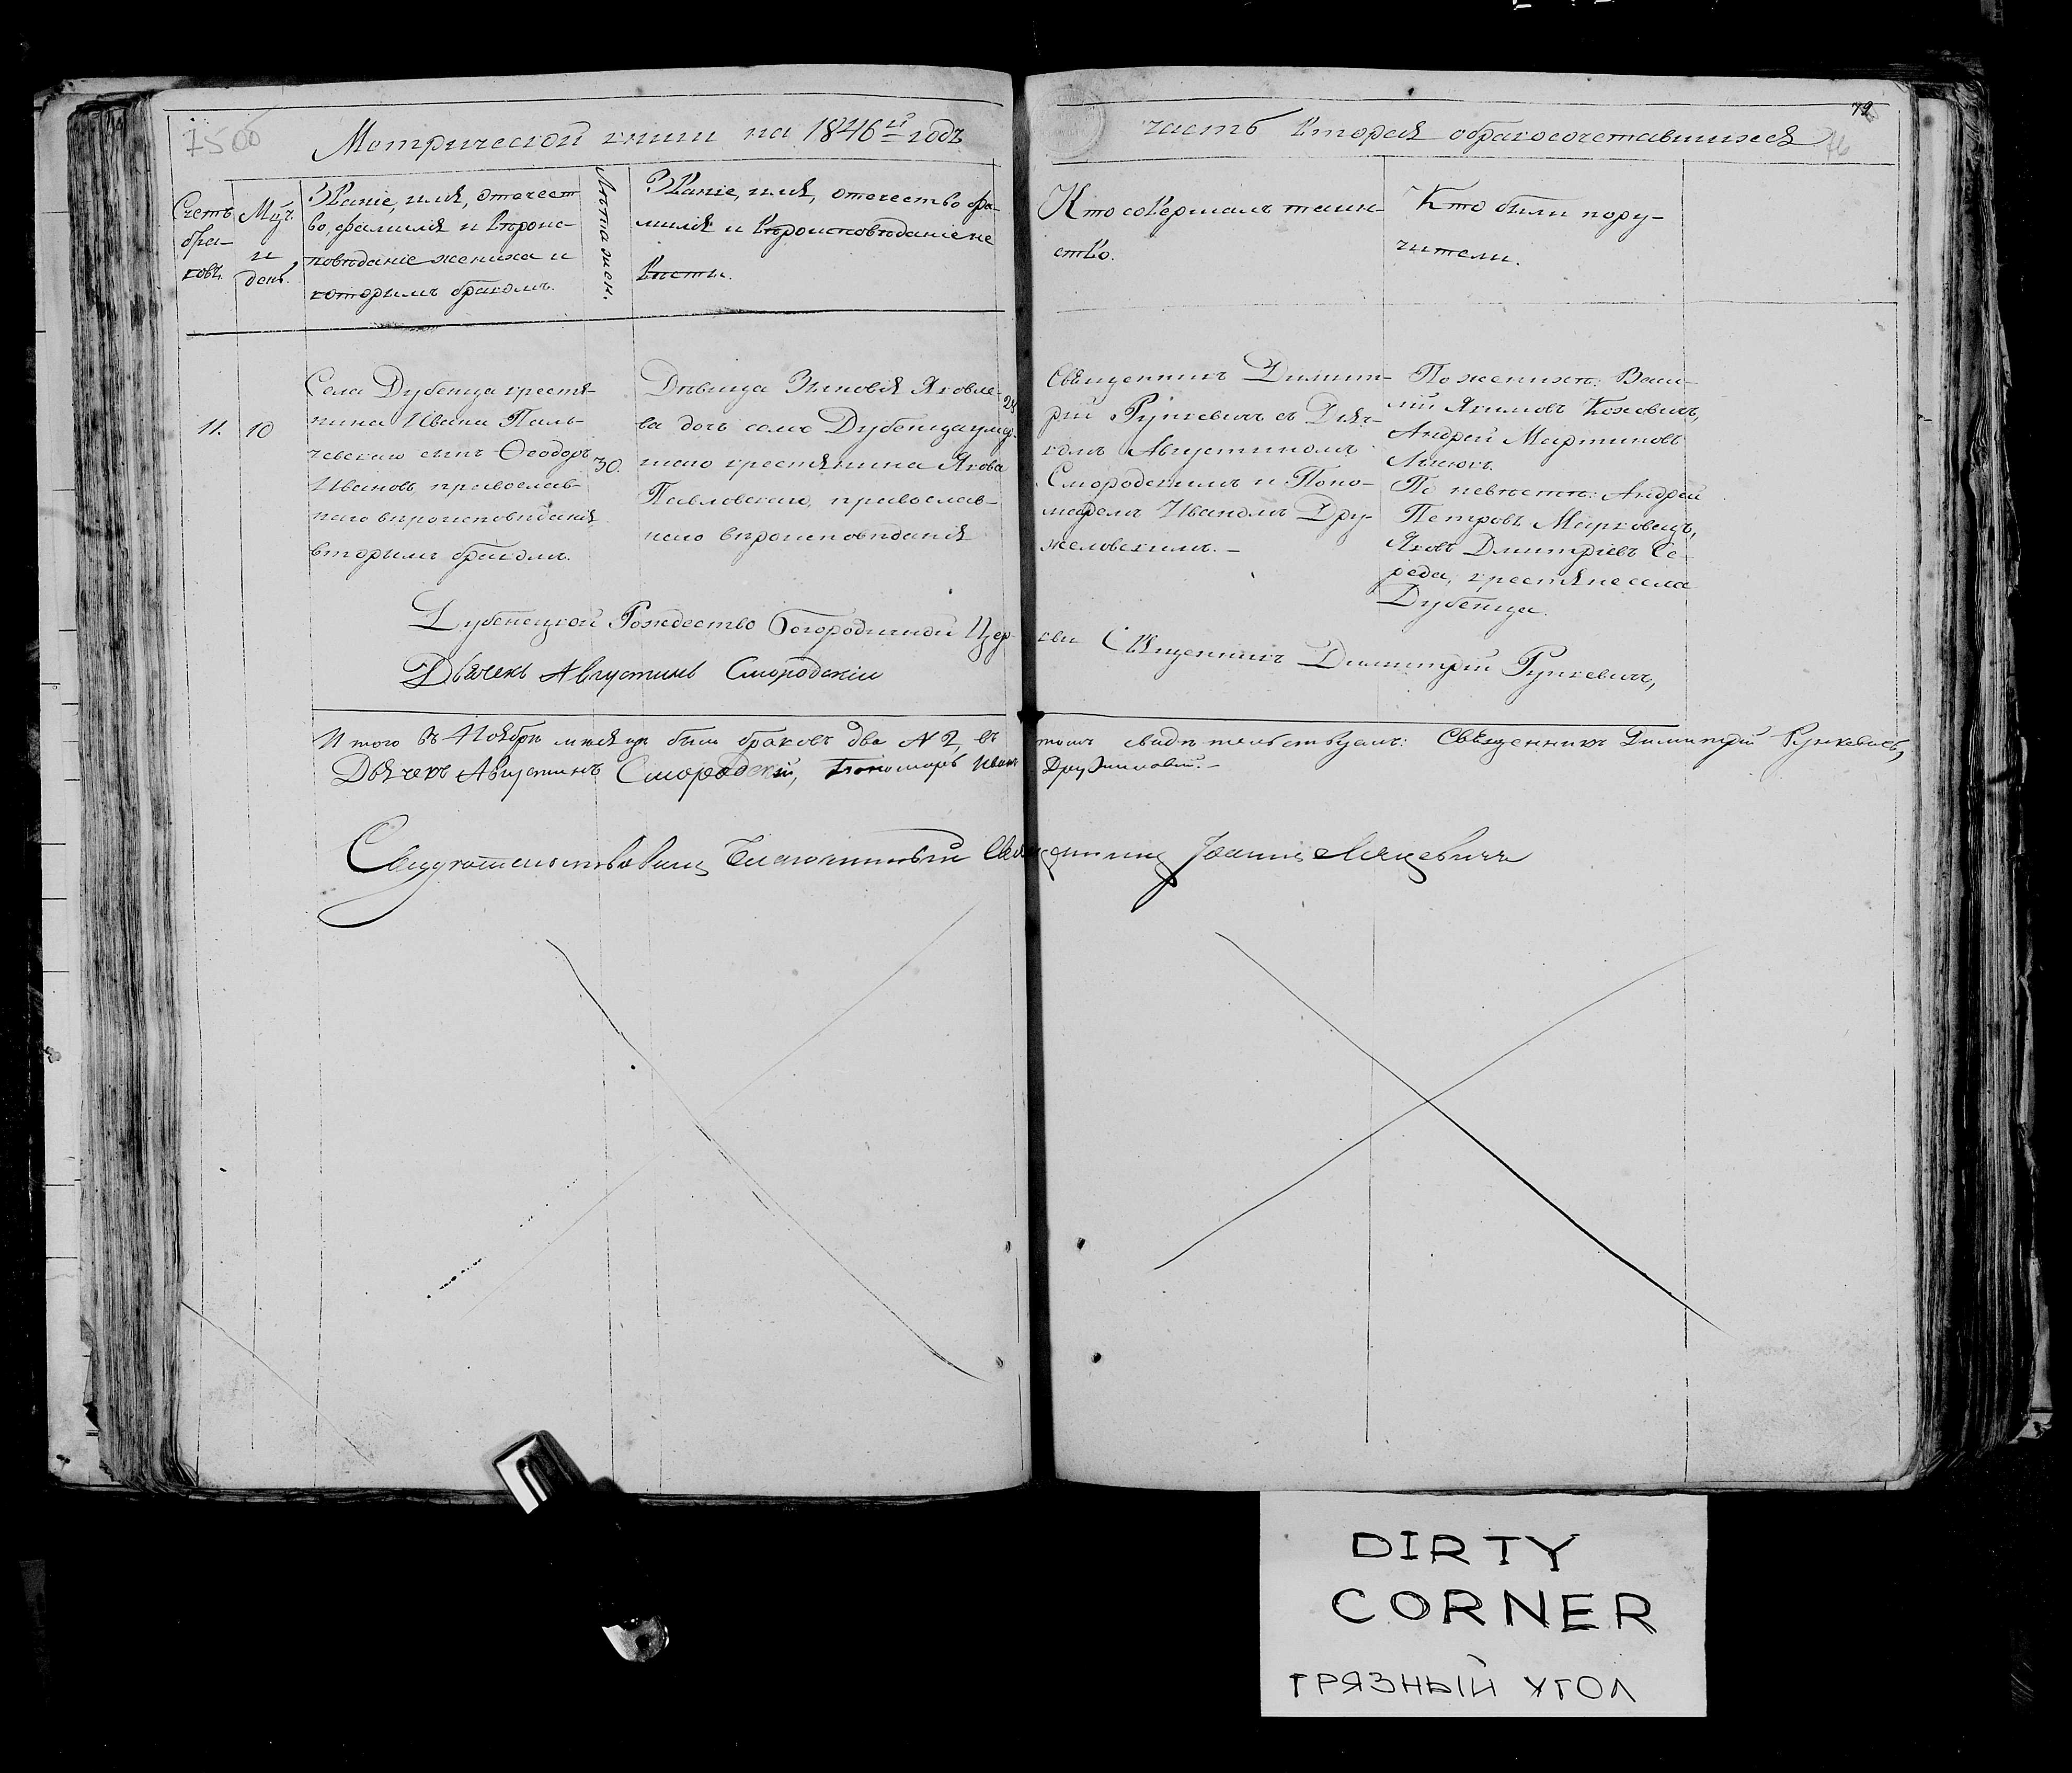 75 об
Метрической книги на 1846й годъ
часть вторая о бракосочетавшихся
79
76
Счетъ
бра-
ковъ.
Мц҃ъ
и
день.
Званіе, имя, отечест
во, фамилія и вѣроис-
повѣданіе жениха и
которымъ бракомъ.
Лѣта жен.
Званіе, имя, отечество фа-
милія и вѣроисповѣданіе не
вѣсты.
Кто совершалъ таин-
ство.
Кто были пору-
чители.
11.
10
Села Дубенца крестя-
нина Ивана Паль-
чевскаго сынъ Ѳеодоръ
Ивановъ, православ-
наго вѣроисповѣданія
вторымъ бракомъ.
30.
Дѣвица Зиновія Яковле-
ва дочь села Дубенца умер-
шаго крестянина Якова
Павловскаго, православ-
наго вѣроисповѣданія
28
Священникъ Димит-
рій Рункевичъ съ Дяч-
комъ Августиномъ
Смородскимъ и Поно-
маремъ Иваномъ Дру-
жиловскимъ. -
По женихѣ: Васи-
лій Якимовъ Коховичъ,
Андрей Мартиновъ
По невѣстѣ: Андрей
Петровъ Марковецъ,
Яковъ Дмитріевъ Се-
реда, крестяне села
Дубенца.
Дубенецкой Рождество Богородичной Церкви Священникъ Димитрій Рункевичъ,
Дьячекъ Августинъ Смородскій
Итого въ Ноябрѣ мѣсяцѣ было браковъ два № 2, въ томъ свидѣтельствуемъ: Священникъ Димитрій Рункевичъ,
Дьячекъ Августинъ Смородскій, Пономарь Иванъ Дружиловскій. -
Свидѣтельствовалъ Благочинный Священникъ Іоаннъ Лисцевичъ
DIRTY
CORNER
ГРЯЗНЫЙ УГОЛ